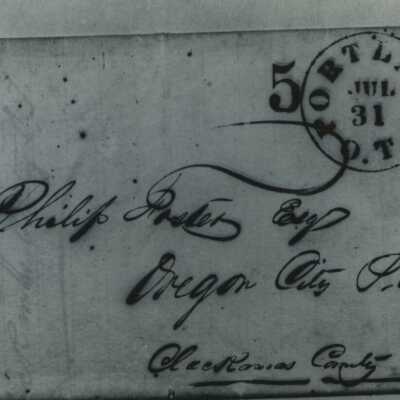 5
PORTL
JUL
31
O.T
Philip Foster Esq
Oregon City P.
Clackamas County